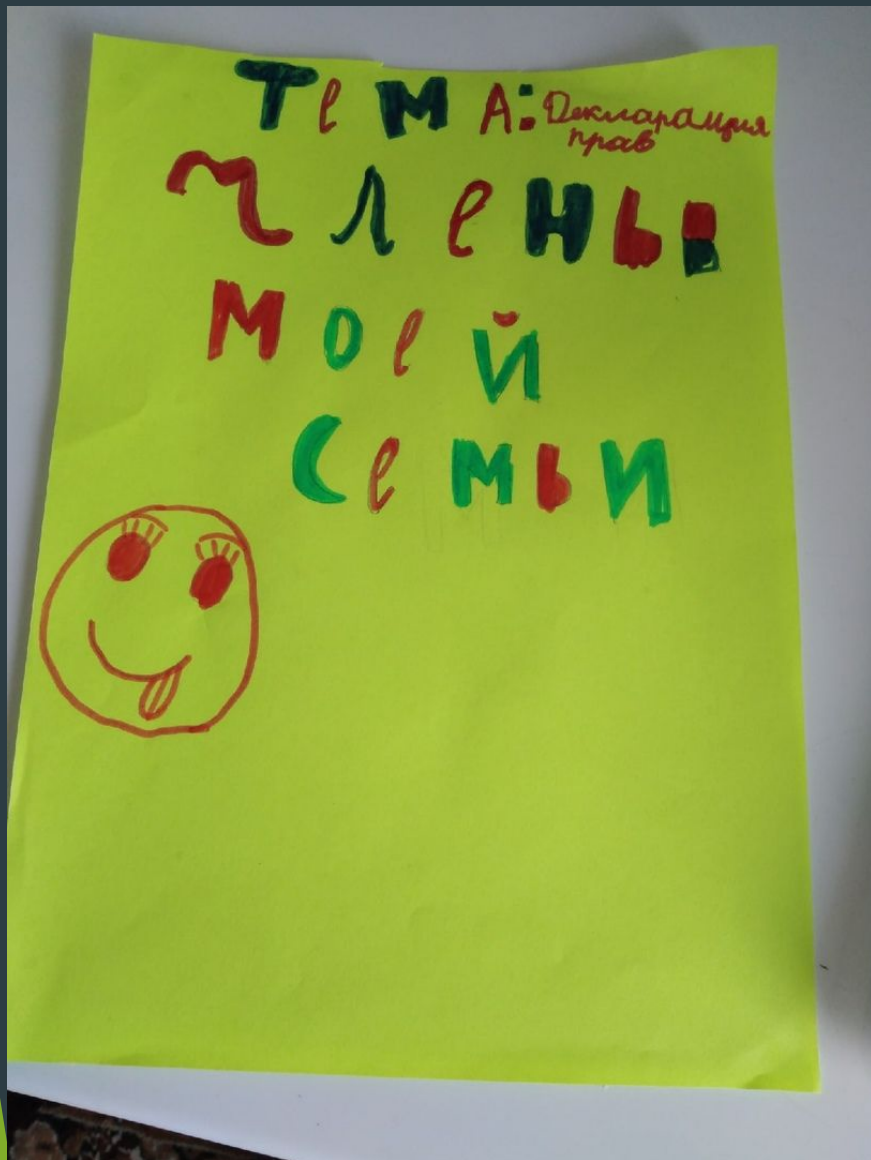 Тема: Декларация
прав
Члены
моей
семьи